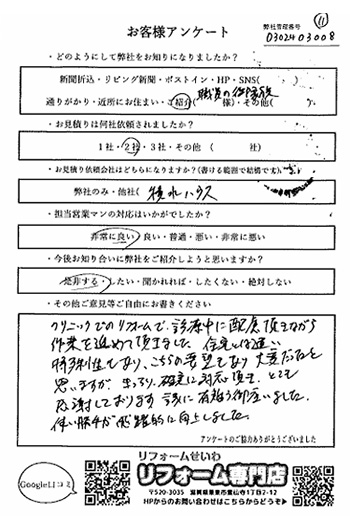 弊社管理番号 ⑪
0302403008
お客様アンケート
・どのようにして弊社をお知りになりましたか？
新聞折込・リビング新聞・ポストイン・HP・SNS( )
通りがかり・近所にお住まい・ご紹介(職員の御家族 様)・その他( )
・お見積りは何社依頼されましたか？
1社・2社・3社・その他（ 社）
・お見積り依頼会社はどちらになりますか？(書ける範囲で結構です)
弊社のみ・他社( 積水ハウス
・担当営業マンの対応はいかがでしたか？
非常に良い・良い・普通・悪い・非常に悪い
・今後お知り合いに弊社をご紹介しようと思いますか？
是非する・したい・聞かれれば・したくない・絶対しない
・その他ご意見等ご自由にお書きください
クリニックでのリフォームで、診療中に配慮頂きながら
作業を進めて頂きました。住宅とは違い
特殊性もあり、こちらの要望もあり大変だったと
思いますが、きっちり、確実に対応頂き、とても
感謝しております。誠に有難う御座いました。
使い勝手が飛躍的に向上しました。
アンケートのご協力ありがとうございました
Google口コミ
リフォームせいわ
リフォーム専門店
〒520-3035 滋賀県栗東市霊仙寺1丁目2-12
HPからのお問い合わせはこちらからどうぞ▶